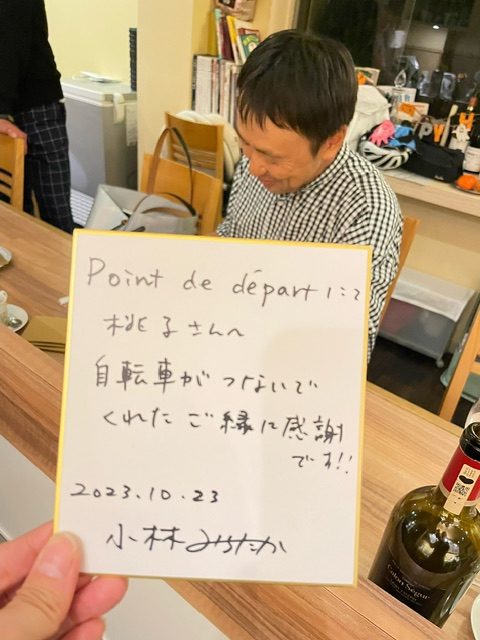 Point de départにて
桃子さんへ
自転車がつないで
くれたご縁に感謝
です!!
2023.10.23
小林みちたか
Calon Segur